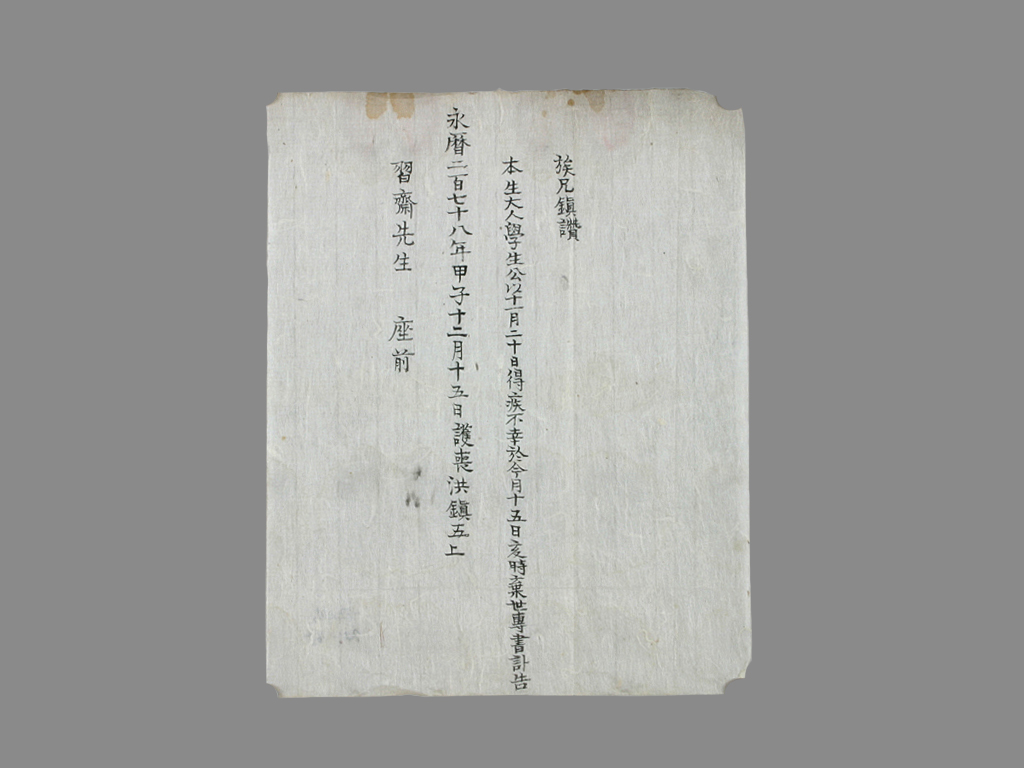 族兄鎭讚
本生大人學生公以十一月二十日得疾不幸於今月十五日亥時棄世專書訃告
永曆二百七十八年甲子十二月十五日護喪洪鎭五上
習齋先生 座前